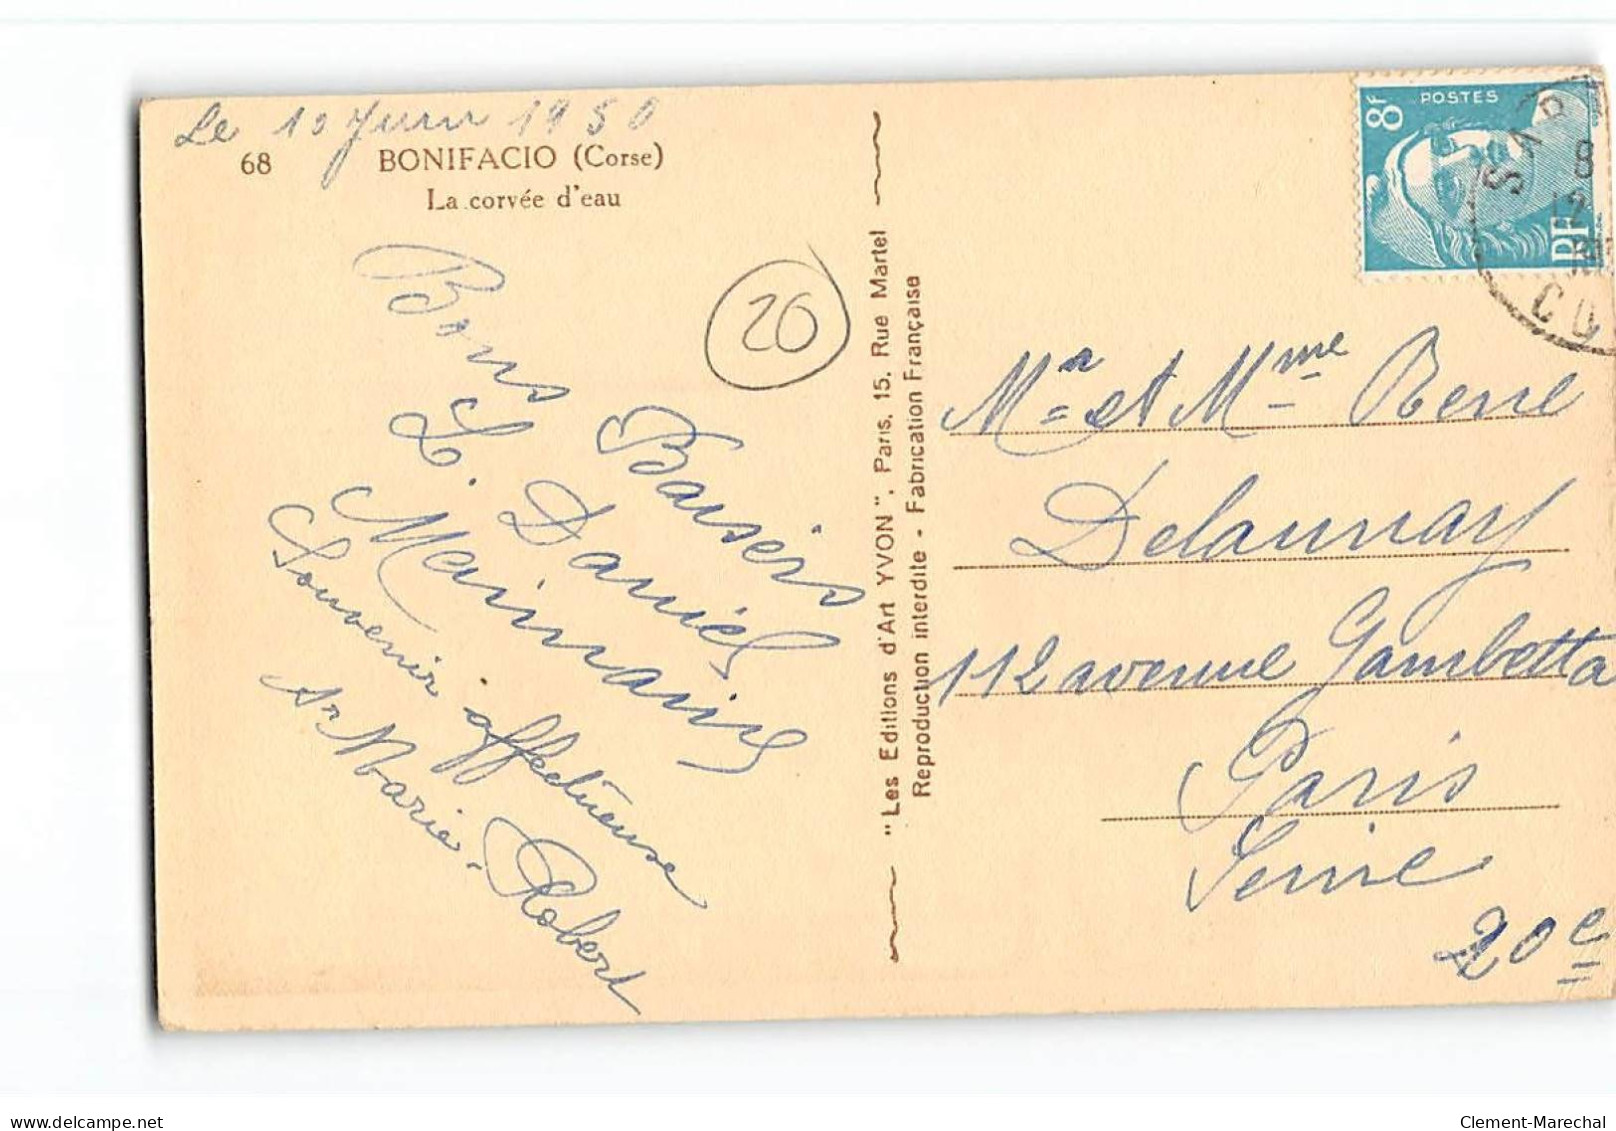 Le 10 Juin 1950
68 BONIFACIO (Corse)
La corvée d'eau
Bons Baisers
L. Daniel
Souvenir affectueuse
Marie - Robert
20
"Les Editions d'Art YVON". Paris. 15. Rue Martel
Reproduction interdite - Fabrication Française
8F POSTES
RF
8
12
CO
Mr et Mme Rene
Delaunay
112 avenue Gambetta
Paris
Seine
20e
delcampe.net
Clement-Marechal